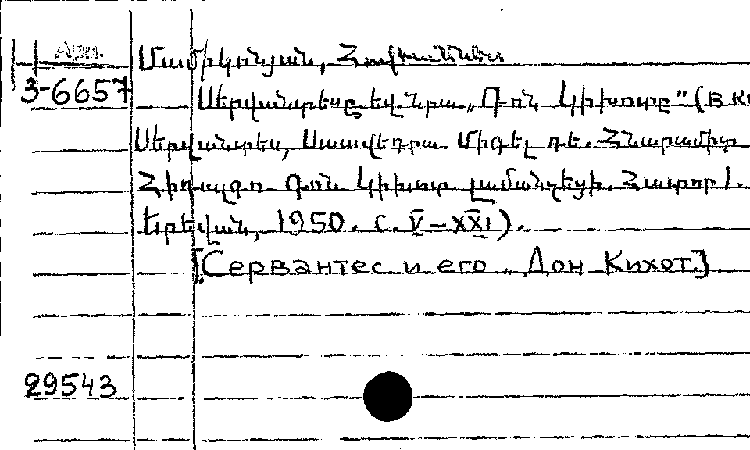 Арм.
Մամիկոնյան, Հովհաննես
3-6657
Սերվանտեսը եվ նրա „Դոն Կիխոտը" (в кн
Սերվանտես, Սաավեդրա Միգել դե. Հնարամիտ
Հիդալգո Դոն Կիխոտ լամանչեցի. Հատոր 1.
Երեվան, 1950. с. V-XXI).
[Сервантес и его „Дон Кихот.]
29543